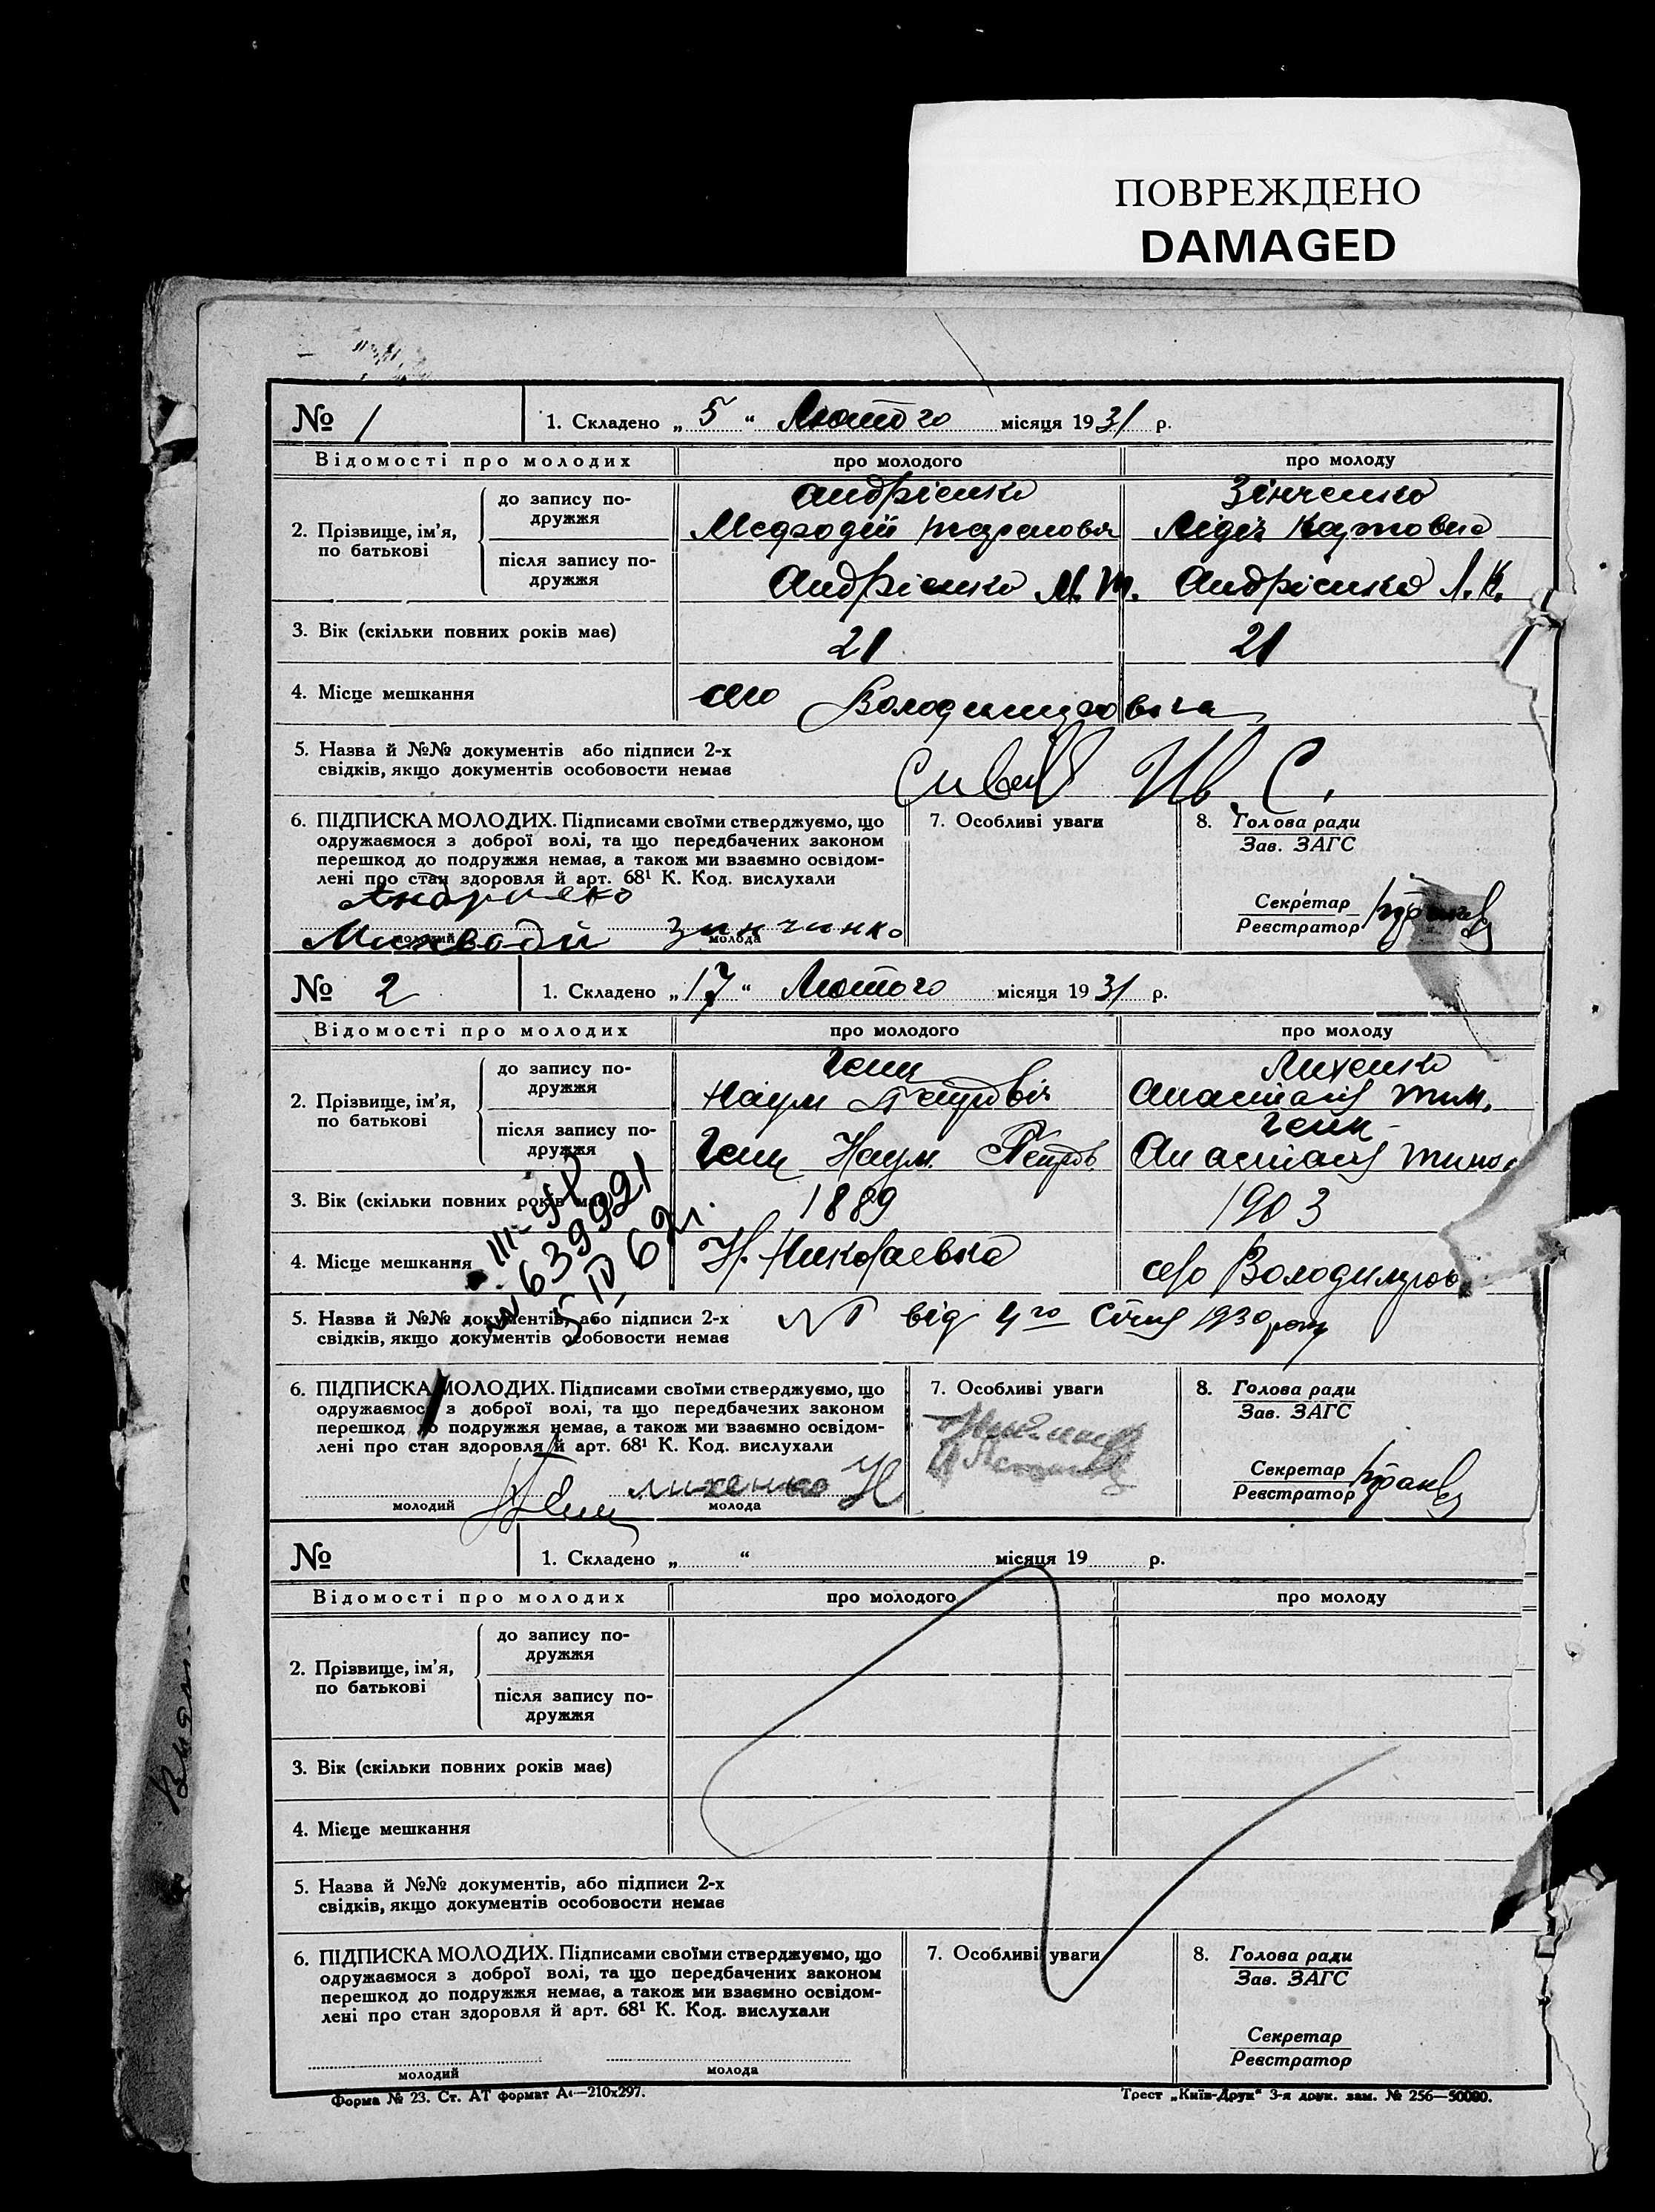 ПОВРЕЖДЕНО
DAMAGED
№ 1
1. Складено „ 5 “ Лютого місяця 1931 р.
Відомості про молодих
про молодого
про молоду
2. Прізвище, ім'я, по батькові
до запису подружжя
Андрієнко
Мефодій
Зінченко
Лідія
після запису подружжя
Андрієнко М. Т.
Андрієнко Л. К.
3. Вік (скільки повних років має)
21
21
4. Місце мешкання
село
5. Назва й №№ документів або підписи 2-х
свідків, якщо документів особовости немає
6. ПІДПИСКА МОЛОДИХ. Підписами своїми стверджуємо, що
одружаємося з доброї волі, та що передбачених законом
перешкод до подружжя немає, а також ми взаємно освідом-
лені про стан здоровля й арт. 68¹ К. Код. вислухали
молодий
Зинчинко
молода
7. Особливі уваги
8. Голова ради
Зав. ЗАГС
Секретар
Реєстратор
№ 2
1. Складено „ 17 “ Лютого місяця 1931 р.
Відомості про молодих
про молодого
про молоду
2. Прізвище, ім'я,
по батькові
до запису по-
дружжя
Наум Петрович
Лихенко
Анастасія Тим.
після запису по-
дружжя
Наум Петров.
Анастасія
3. Вік (скільки повних років має)
1889
1903
III-
639921
IV 62 г.
4. Місце мешкання
Н. Николаевка
село
5. Назва й №№ документів, або підписи 2-х
свідків, якщо документів особовости немає
від 4го Січня 1930 року
6. ПІДПИСКА МОЛОДИХ. Підписами своїми стверджуємо, що
одружаємося з доброї волі, та що передбачених законом
перешкод до подружжя немає, а також ми взаємно освідом-
лені про стан здоровля й арт. 68¹ К. Код. вислухали
молодий
лихенко Н
молода
7. Особливі уваги
8. Голова ради
Зав. ЗАГС
Секретар
Реєстратор
№
1. Складено „ “ місяця 19 р.
Відомості про молодих
про молодого
про молоду
2. Прізвище, ім'я,
по батькові
до запису по-
дружжя
після запису по-
дружжя
3. Вік (скільки повних років має)
4. Місце мешкання
5. Назва й №№ документів, або підписи 2-х
свідків, якщо документів особовости немає
6. ПІДПИСКА МОЛОДИХ. Підписами своїми стверджуємо, що
одружаємося з доброї волі, та що передбачених законом
перешкод до подружжя немає, а також ми взаємно освідом-
лені про стан здоровля й арт. 68¹ К. Код. вислухали
молодий
молода
7. Особливі уваги
8. Голова ради
Зав. ЗАГС
Секретар
Реєстратор
Форма № 23. Ст. АТ формат А4—210х297.
Трест „Київ-Друк“ 3-я друк. зам. № 256—50000.